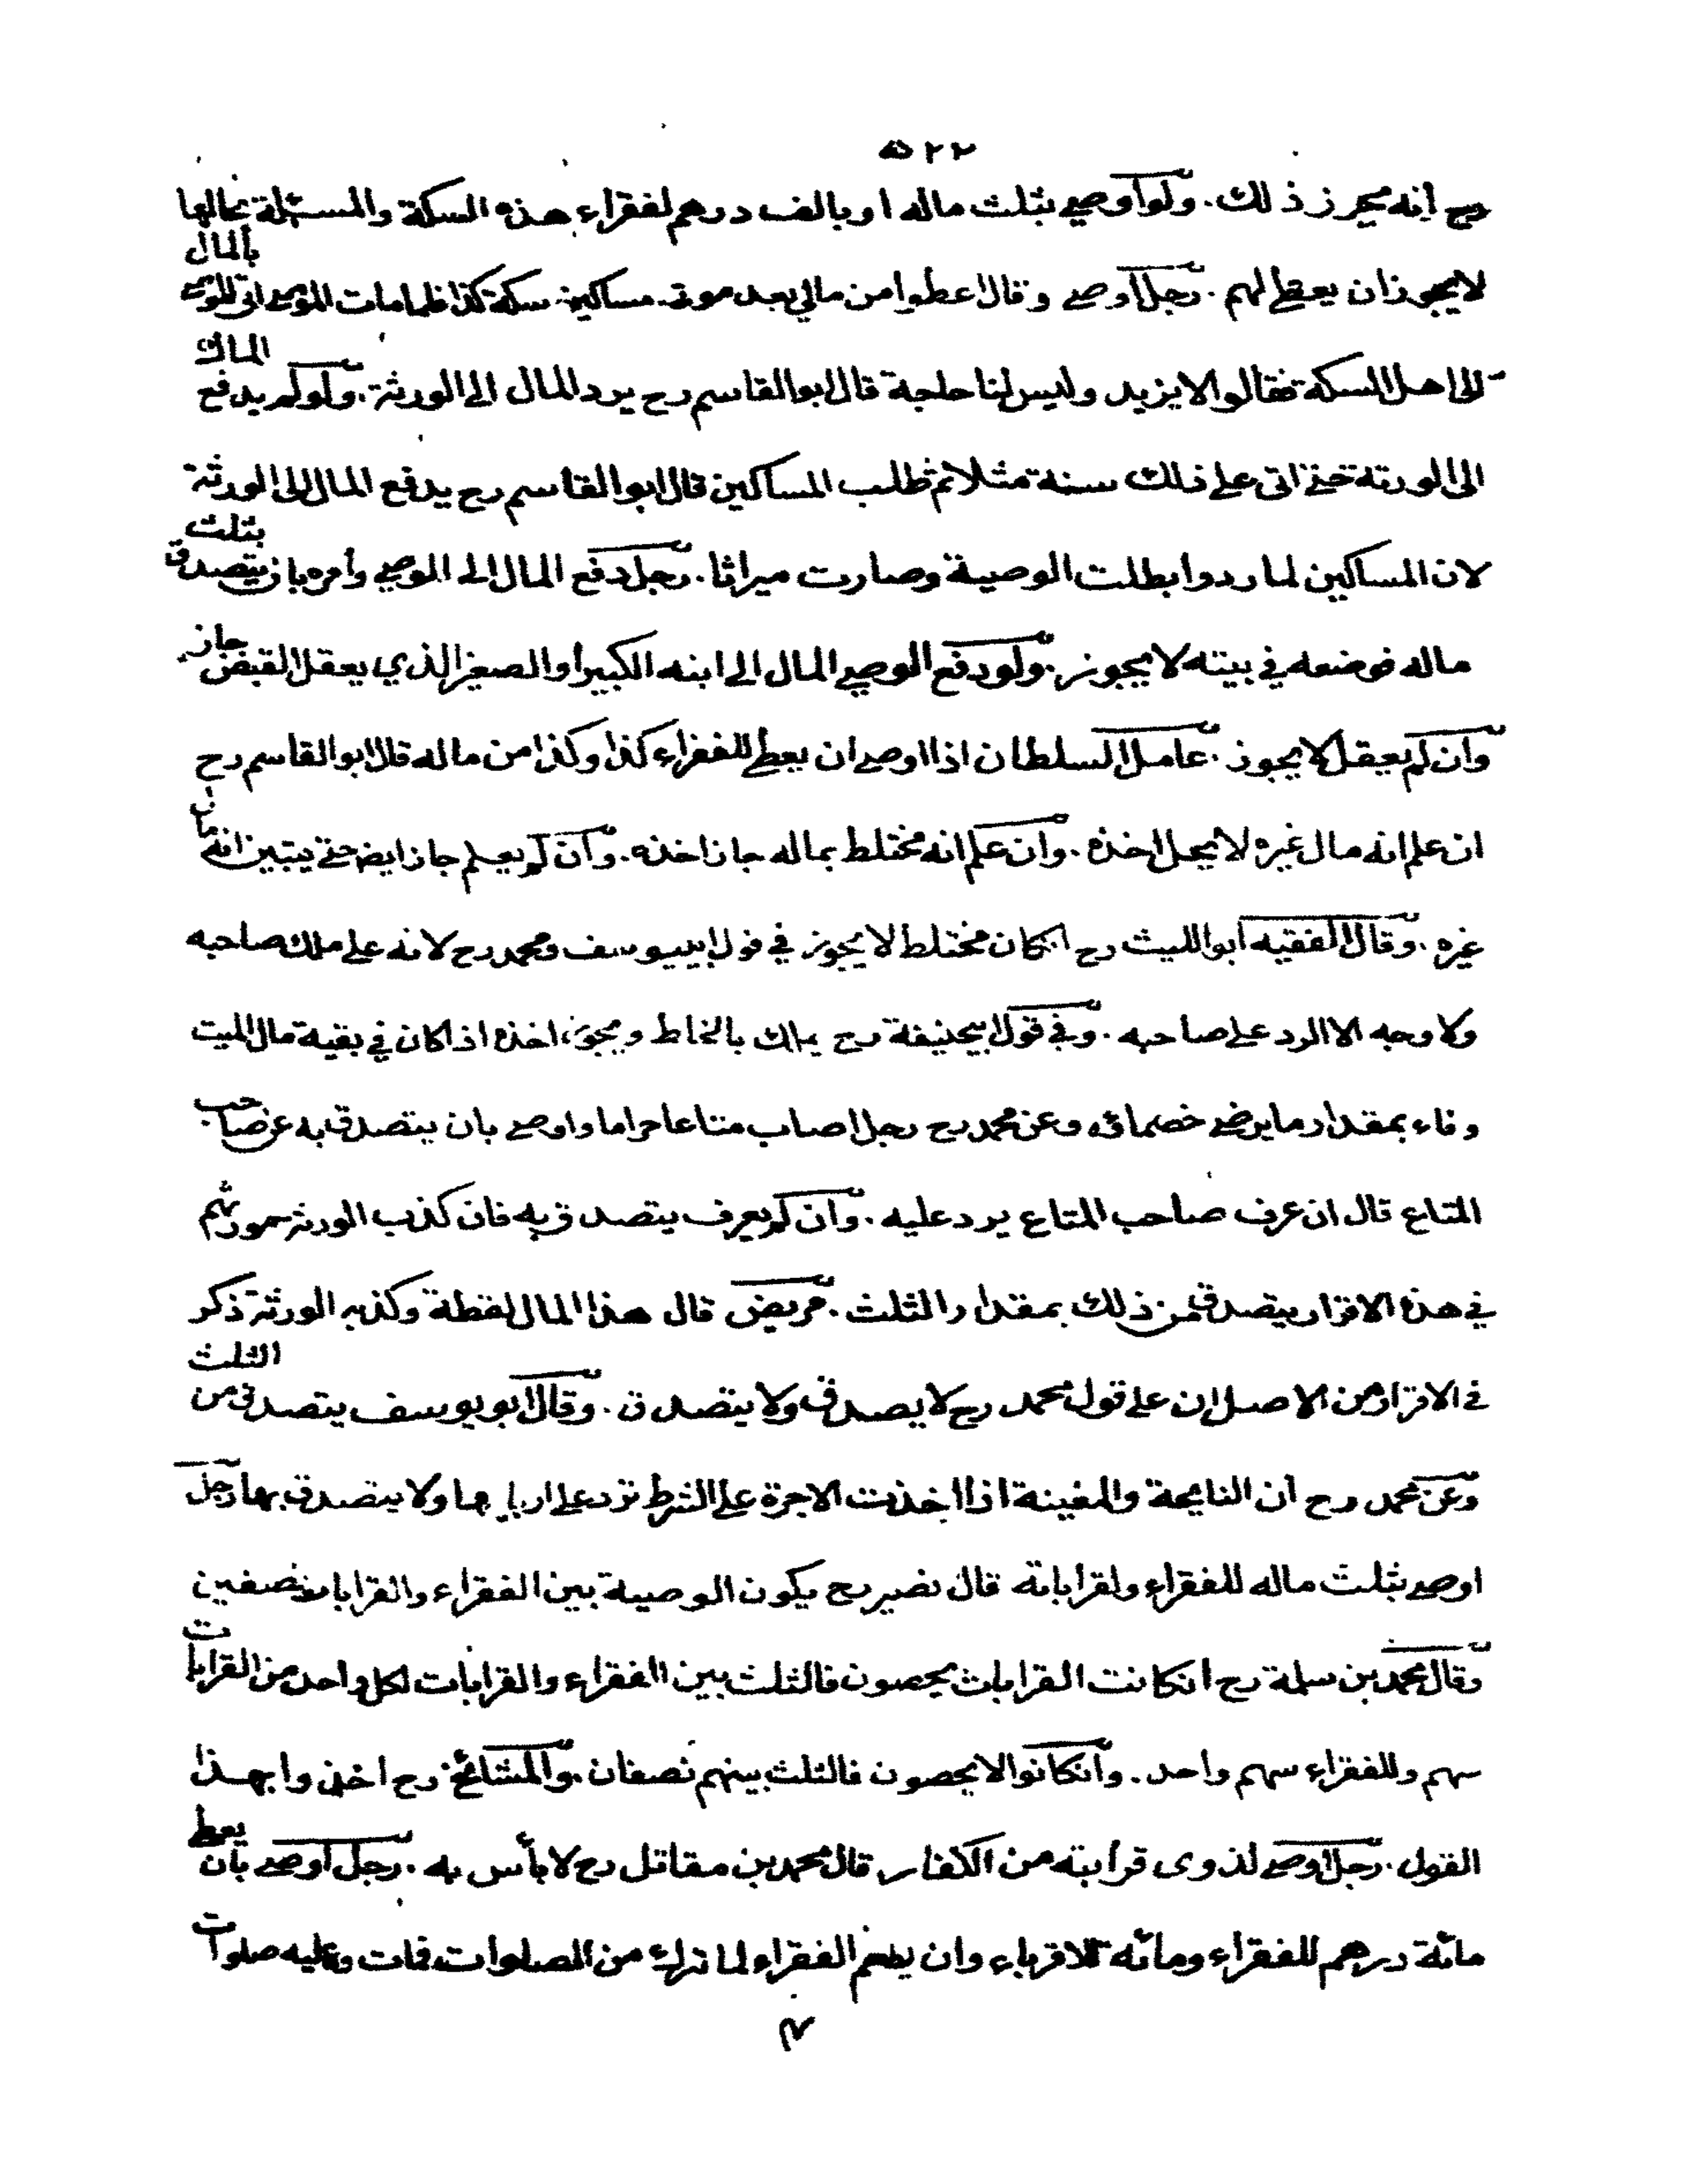 ٥٢٢
رح انه يجوز ذلك. ولو اوصى بثلث ماله او بالف درهم لفقراء هذه السكة والمسئلة بحالها
لا يجوز ان يعطى لهم. رجل اوصى وقال اعطوا من مالي بعد موتى مساكين سكة كذا فلما مات الموصى اتى الموصى بالمال
الى اهل السكة فقالوا لا يزيد وليس لنا حاجة قال ابو القاسم رح يرد المال الى الورثة. ولو لم يدفع المال
الى الورثة حتى اتى على ذلك سنة مثلا ثم طلب المساكين قال ابو القاسم رح يدفع المال الى الورثة
لان المساكين لما ردوا بطلت الوصية وصارت ميراثا. رجل دفع المال الى الموصى وأمره بان يتصدق بثلث
ماله فوضعه في بيته لا يجوز. ولو دفع الوصى المال الى ابنه الكبير او الصغير الذي يعقل القبض جاز
وان لم يعقل لا يجوز. عامل السلطان اذا اوصى ان يعطى للفقراء كذا وكذا من ماله قال ابو القاسم رح
ان علم انه مال غيره لا يحل اخذه. وان علم انه مختلط بماله جاز اخذه. وان لم يعلم جاز ايضا حتى يتبين انه مال
غيره. وقال الفقيه ابو الليث رح انكان مختلط لا يجوز في قول ابييوسف ومحمد رح لانه على ملك صاحبه
ولا وجه الا الرد على صاحبه. وفي قول ابيحنيفة رح يملك بالخلط ويجوز اخذه اذا كان في بقية مال الميت
وفاء بمقدار ما يرضى خصمائه وعن محمد رح رجل اصاب متاعا حراما واوصى بان يتصدق به عن صاحب
المتاع قال ان عرف صاحب المتاع يرد عليه. وان لم يعرف يتصدق به فان كذب الورثة مورثهم
في هذه الاقرار يتصدق من ذلك بمقدار الثلث. مريض قال هذا المال لقطة وكذبه الورثة ذكر
في الاقرار من الاصل ان على قول محمد رح لا يصدق ولا يتصدق. وقال ابو يوسف يتصدق من الثلث
وعن محمد رح ان النايحة والمغينة اذا اخذت الاجرة على الشرط ترد على اربابها ولا يتصدق بها رجل
اوصى بثلث ماله للفقراء ولقراباته قال نصير رح يكون الوصية بين الفقراء والقرابات نصفين
وقال محمد بن سلمة رح انكانت القرابات يحصون فالثلث بين الفقراء والقرابات لكل واحد من القرابات
سهم وللفقراء سهم واحد. وانكانوا لا يحصون فالثلث بينهم نصفان. والمشائخ رح اخذوا بهذا
القول. رجل اوصى لذوى قرابته من الكفار قال محمد بن مقاتل رح لا بأس به. رجل اوصى بان يعطى
مائة درهم للفقراء ومائة للاقرباء وان يطعم الفقراء لما ترك من الصلوات فمات وعليه صلوات